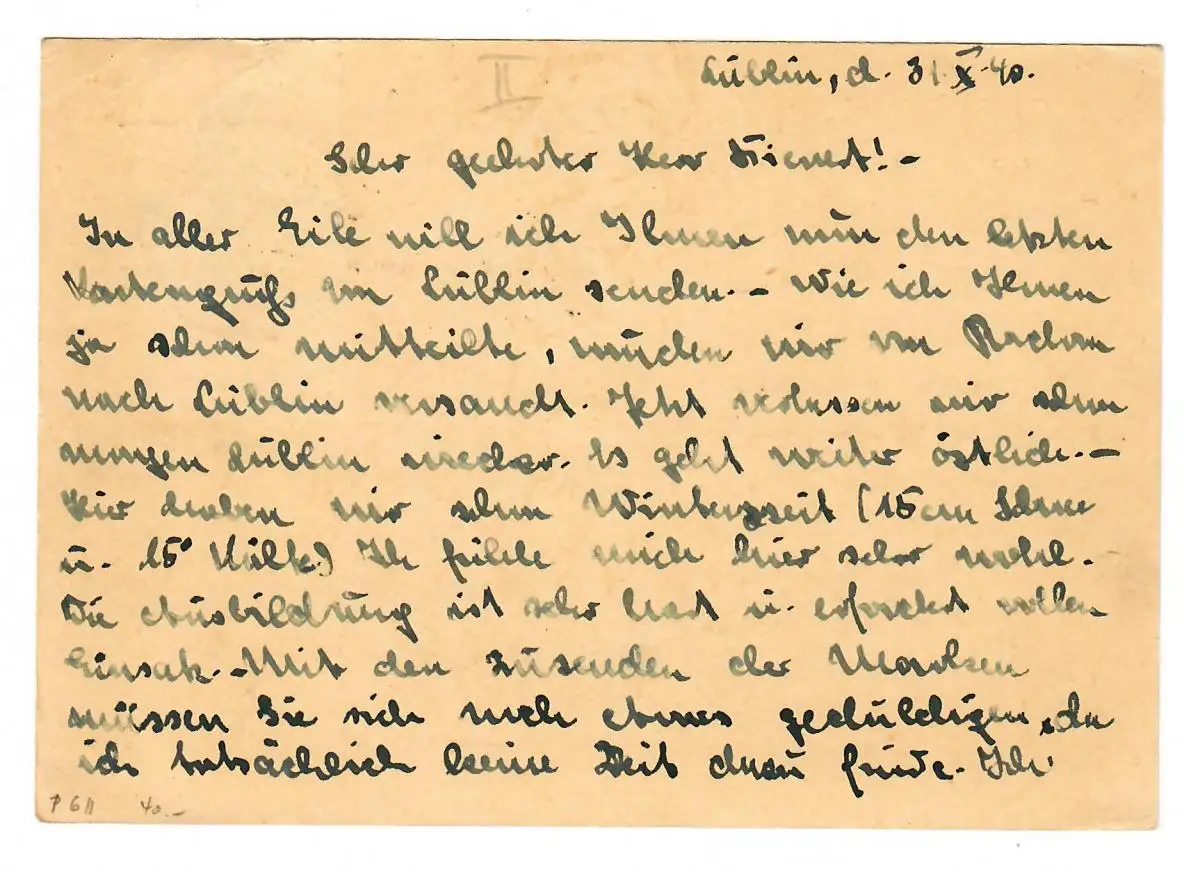 II
Lublin, d. 31.X.40.
Sehr geehrter Herr !-
In aller Eile will ich Ihnen nun den letzten
Kartengruß von Lublin senden.- Wie ich Ihnen
ja schon mitteilte, wurden wir von Radom
nach Lublin versandt. Jetzt verlassen wir schon
morgen Lublin wieder. Es geht weiter östlich.-
Hier haben wir schon Winterszeit (15 cm Schnee
u. 15° Kälte) Ich fühle mich hier sehr wohl.
Die Ausbildung ist sehr hart u. erfordert vollen
Einsatz.-Mit den Zusenden der Marken
müssen Sie sich noch etwas geduldigen, da
ich tatsächlich keine Zeit dazu finde. Ich
P 6 II 40.-